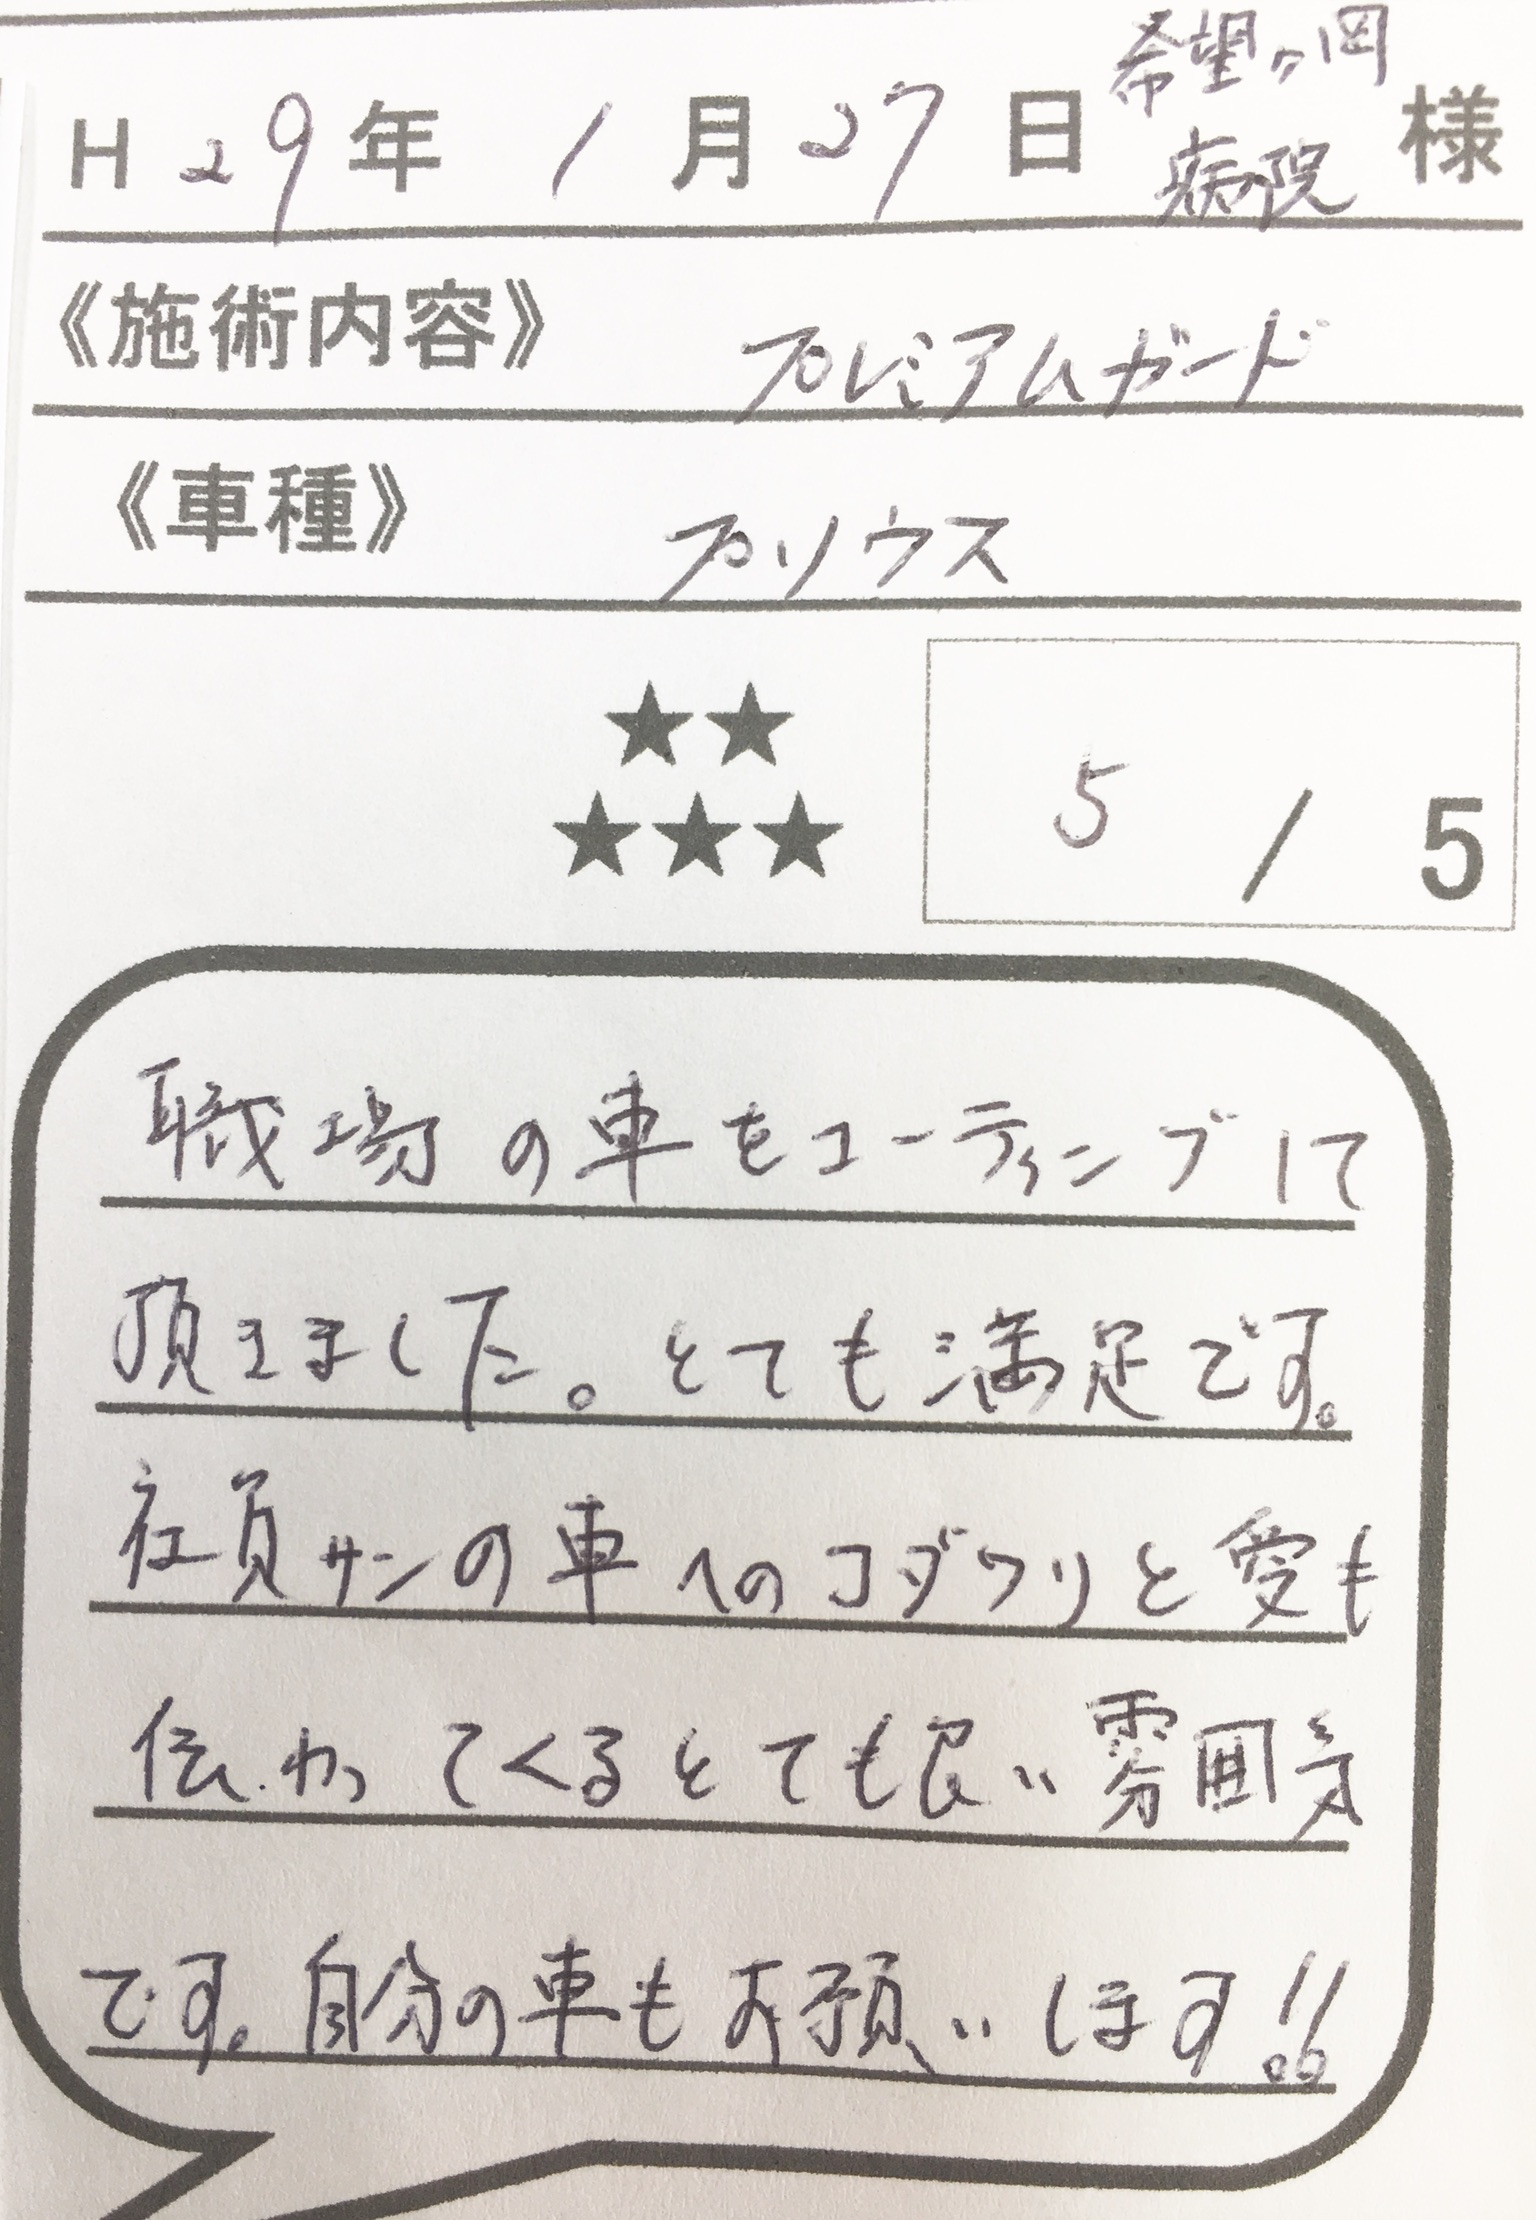 H 29年 1月 27日 希望ヶ岡病院 様
《施術内容》 プレミアムガード
《車種》 プリウス
★★
★★★ 5 / 5
職場の車をコーティングして
頂きました。とても満足です。
社員サンの車へのコダワリと愛も
伝わってくるとても良い雰囲気
です。自分の車もお願いします!!